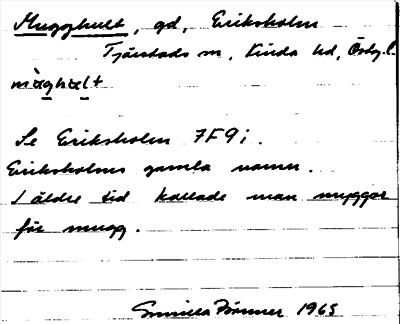 Mugghult, gd, Eriksholm
Tjärstads sn, Kinda hd, Östg.l.
mùghult
Se Eriksholm 7F9i.
Eriksholms gamla namn.
I äldre tid kallade man myggor
för mugg.
Gunilla 1965